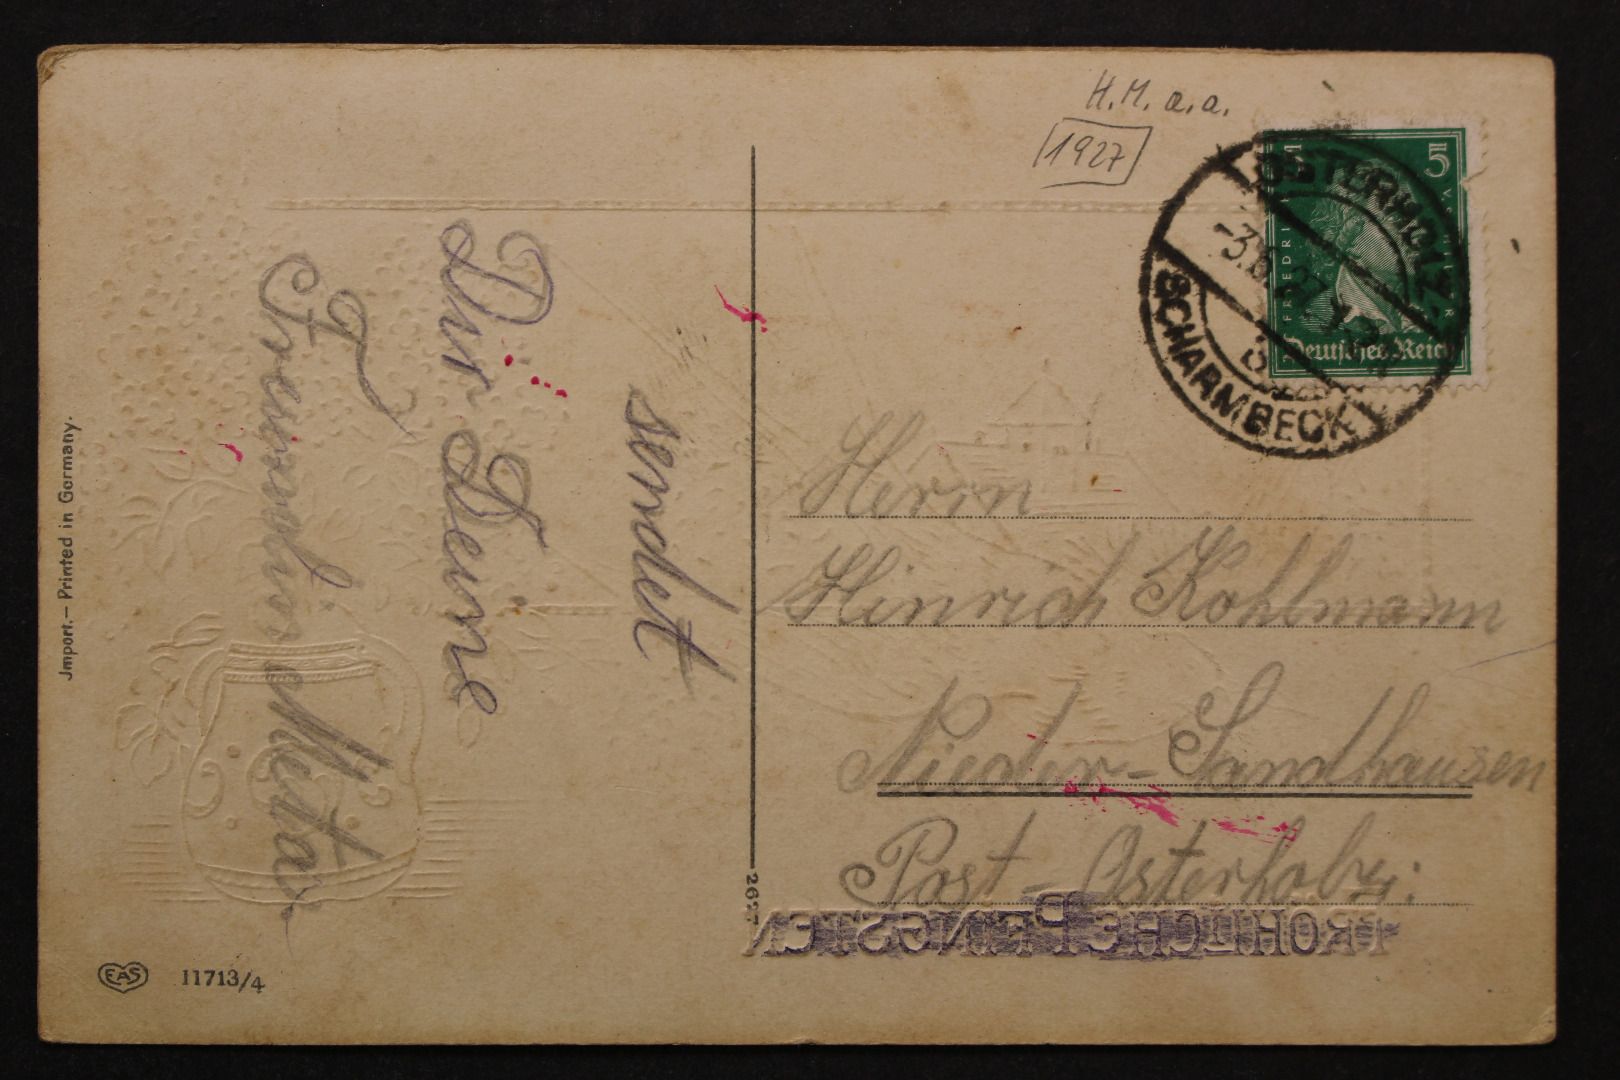 H.M. a.a.
1927
5
FRIEDRICH V. SCHILLER
Deutsches Reich
OSTERHOLZ-
SCHARMBECK
Herrn
Hinrich Kohlmann
Nieder-Sandhausen
Post-Osterholz.
sendet
Dir Deine
Freundin Meta
Import.– Printed in Germany.
EAS 11713/4
FRÖHLICHE PFINGSTEN